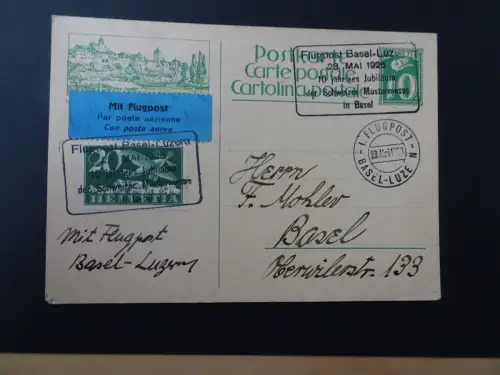 Postkarte
Carte postale
Cartolina postale
10
Flugpost Basel-Luzern
28. MAI 1926
10 jähriges Jubiläum
der Schweizer Mustermesse
in Basel
Mit Flugpost
Par poste aérienne
Con posta aerea
Flugpost Basel-Luzern
MAI 1926
Jubiläum
20
HELVETIA
I. FLUGPOST
BASEL-LUZE N
Herrn
F. Mohler
Basel
Oberwilerstr. 133
Mit Flugpost
Basel-Luzern